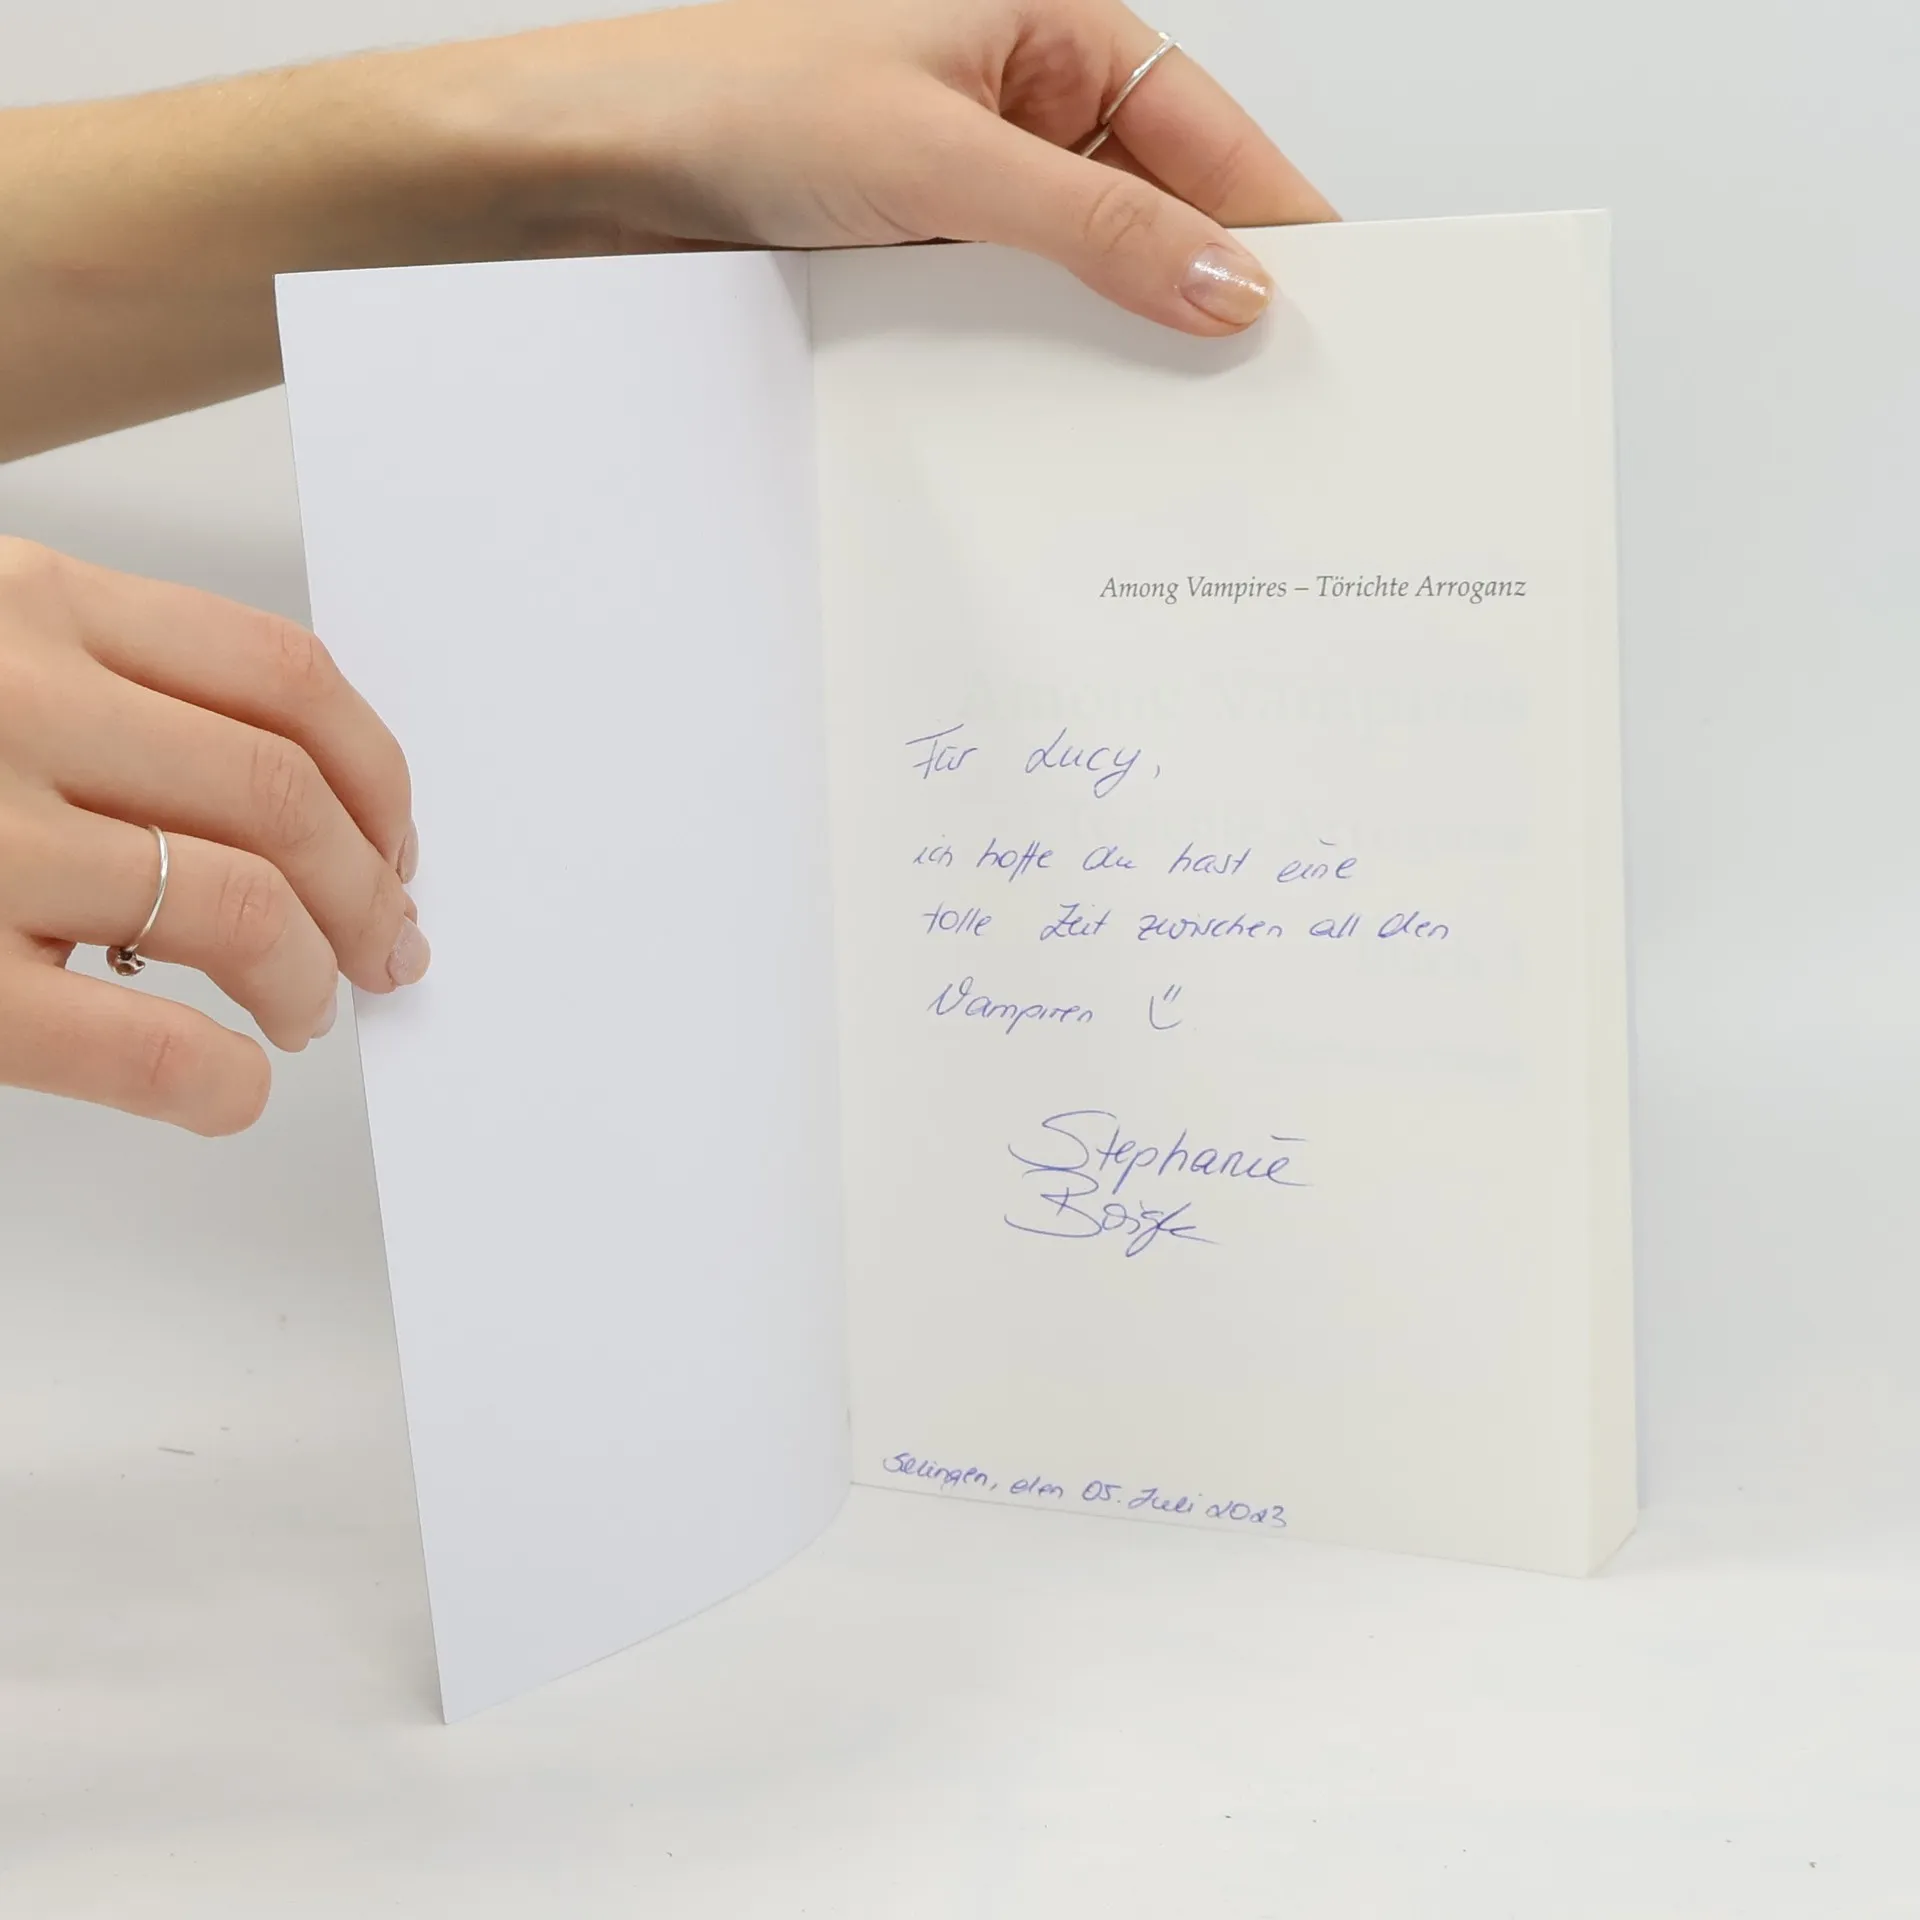 Among Vampires – Törichte Arroganz
Für Lucy,
ich hoffe du hast eine
tolle Zeit zwischen all den
Vampiren
Stephanie
Solingen, den 05. Juli 2023